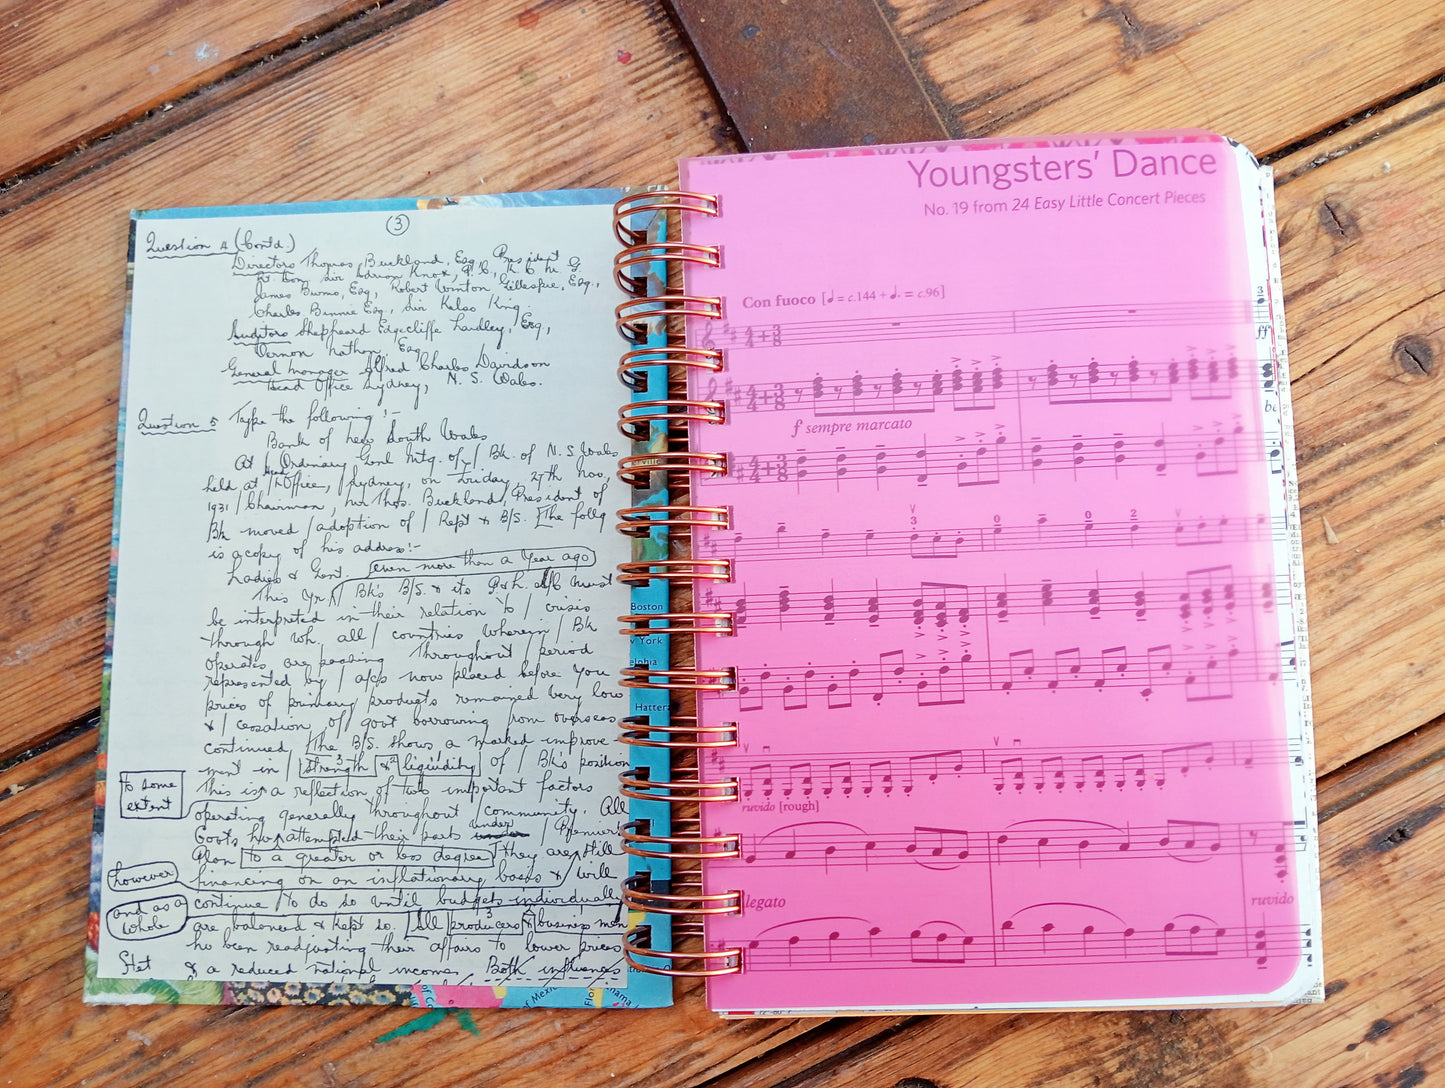 3
Question 4 (Contd.)
Directors Thomas Buckland, Esq President
Rt. Hon. Sir Adrian Knox, P.C., K.C.M.G.
James Burns, Esq, Robert Winton Gillespie, Esq.,
Charles Binnie Esq, Sir Kelso King.
Auditors Shepheard Edgecliffe Laidley, Esq,
Vernon Nathan, Esq
General Manager Alfred Charles Davidson
Head Office Sydney, N. S. Wales.
Question 5 Type the following :-
Bank of New South Wales
At / Ordinary Genl Mtg. of / Bk. of N.S. Wales
held at / Head Office, Sydney, on Friday 27th Nov,
1931 / Chairman, Mr Thos. Buckland, President of
Bk moved / adoption of / Rept & B/S. [The follg
is a copy of his address:-
Ladies & Gent. even more than a year ago
This yr / Bk's B/S. & its P & L. a/c must
be interpreted in their relation to / crisis
through wh. all / countries wherein / Bk
operates are passing Throughout / period
represented by / a/cs now placed before you
prices of primary products remained very low
& / cessation of govt borrowing from overseas
continued [The B/S. shows a marked improve-
ment in / strength 3 & 2 liquidity of / Bk's position
to some extent
This is a reflection of two important factors
operating generally throughout / community. All
Govts hv attempted their part under / Premiers'
Plan to a greater or less degree [They are still
however
financing on an inflationary basis & will
and as a whole
continue to do so until budgets individually
are balanced & kept so. [All producers & business men
hv been readjusting their affairs to lower prices
Stet & a reduced national income. Both influences
Boston
York
Hatter
of Mexico
Youngsters' Dance
No. 19 from 24 Easy Little Concert Pieces
Con fuoco [♩ = c.144 + ♩. = c.96]
3
ff
4/4 + 3/8
4/4 + 3/8
f sempre marcato
4/4 + 3/8
3 0 0 2
ruvido [rough]
legato
ruvido